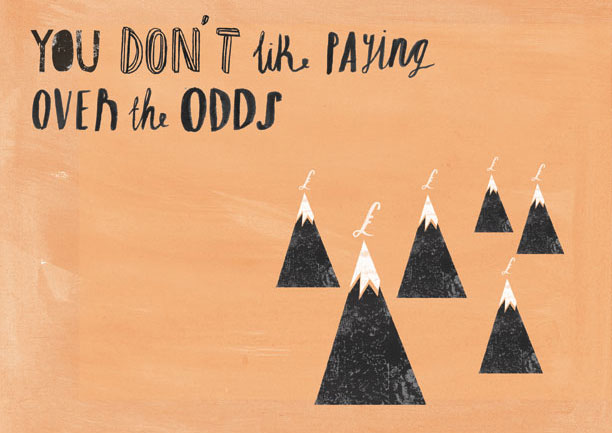 YOU DON'T like PAYing
OVER the ODDS
£
£
£
£
£
£